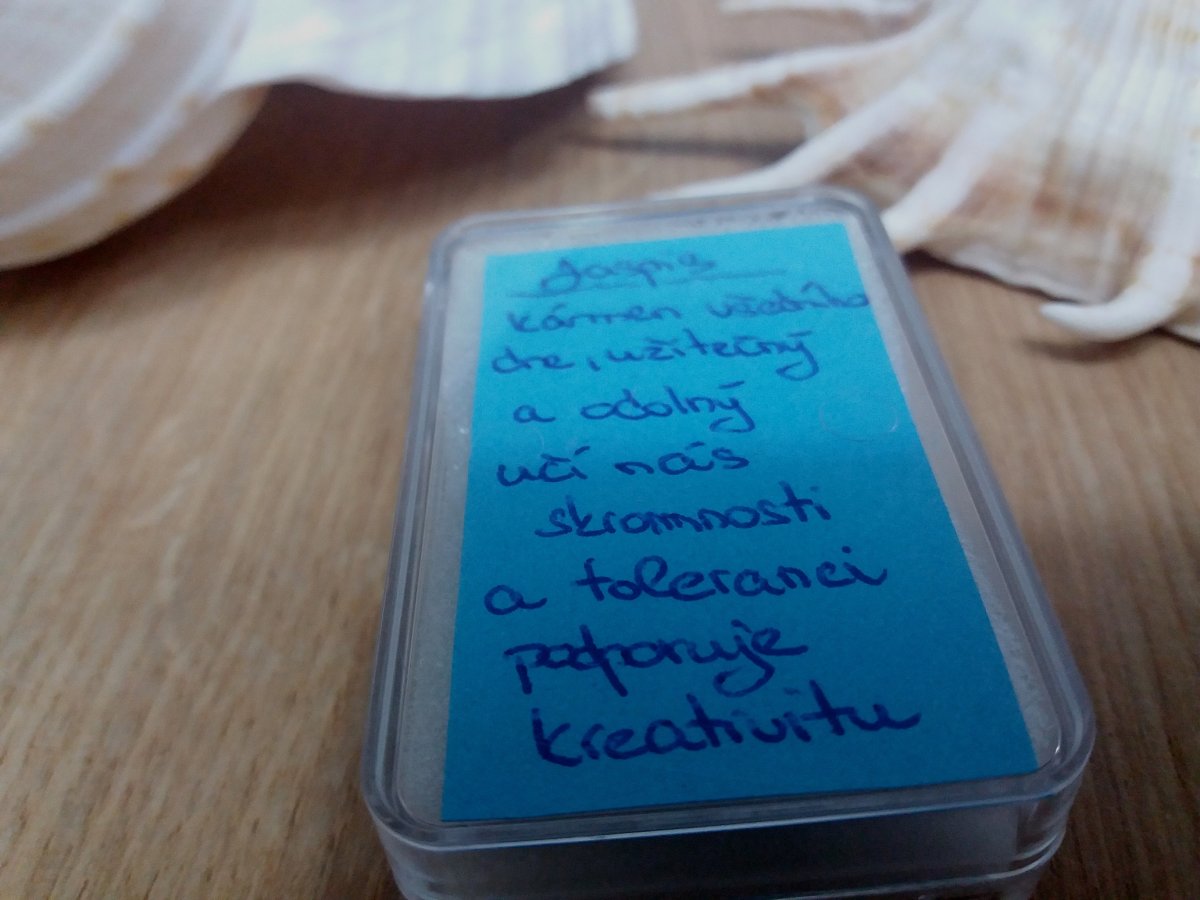 Jaspis
kámen všedního
dne, užitečný
a odolný
učí nás
skromnosti
a toleranci
podporuje
kreativitu